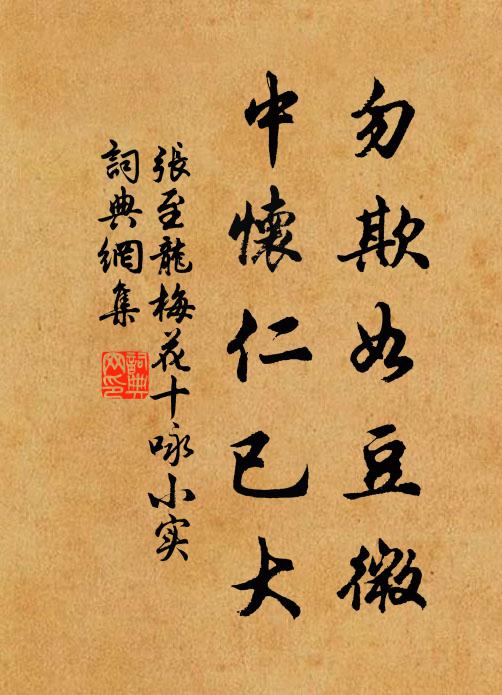 勿欺如豆微
中懷仁已大
張至龍梅花十咏小实
詞典網集
詞典網印